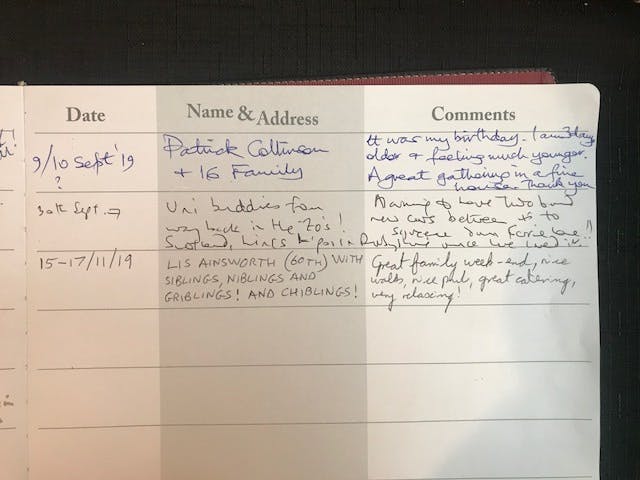 Date Name & Address Comments
9/10 Sept '19
?
Patrick Collinson
+ 16 Family
It was my birthday. I am 3 days
older & feeling much younger.
A great gathering in a fine
house. Thank you
30th Sept.
Uni buddies from
way back in the 70's!
Scotland,
to have two brand
new cars between us to
squeeze down
15-17/11/19
LIS AINSWORTH (60TH) WITH
SIBLINGS, NIBLINGS AND
GRIBLINGS! AND CHIBLINGS!
Great family week-end, nice
walks, nice pub, great catering,
very relaxing!